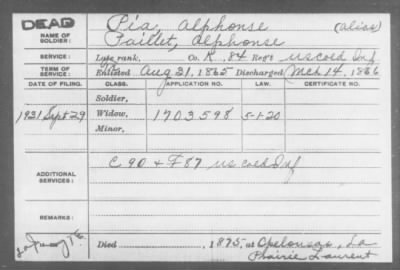 DEAD
Pia, Alphonse (alias)
NAME OF SOLDIER: Paillet, Alphonse
SERVICE: Late rank, Co. K, 84 Reg't US Cold Inf
TERM OF SERVICE: Enlisted Aug 21, 1865 Discharged Mch 14, 1866
DATE OF FILING. CLASS. APPLICATION NO. LAW. CERTIFICATE NO.
Soldier,
1921 Sept 29 Widow, 1703598 5-1-20
Minor,
ADDITIONAL SERVICES: C 90 & F 87 US Cold Inf
REMARKS:
Died , 1875, at Opelousas, La
Prairie Laurent